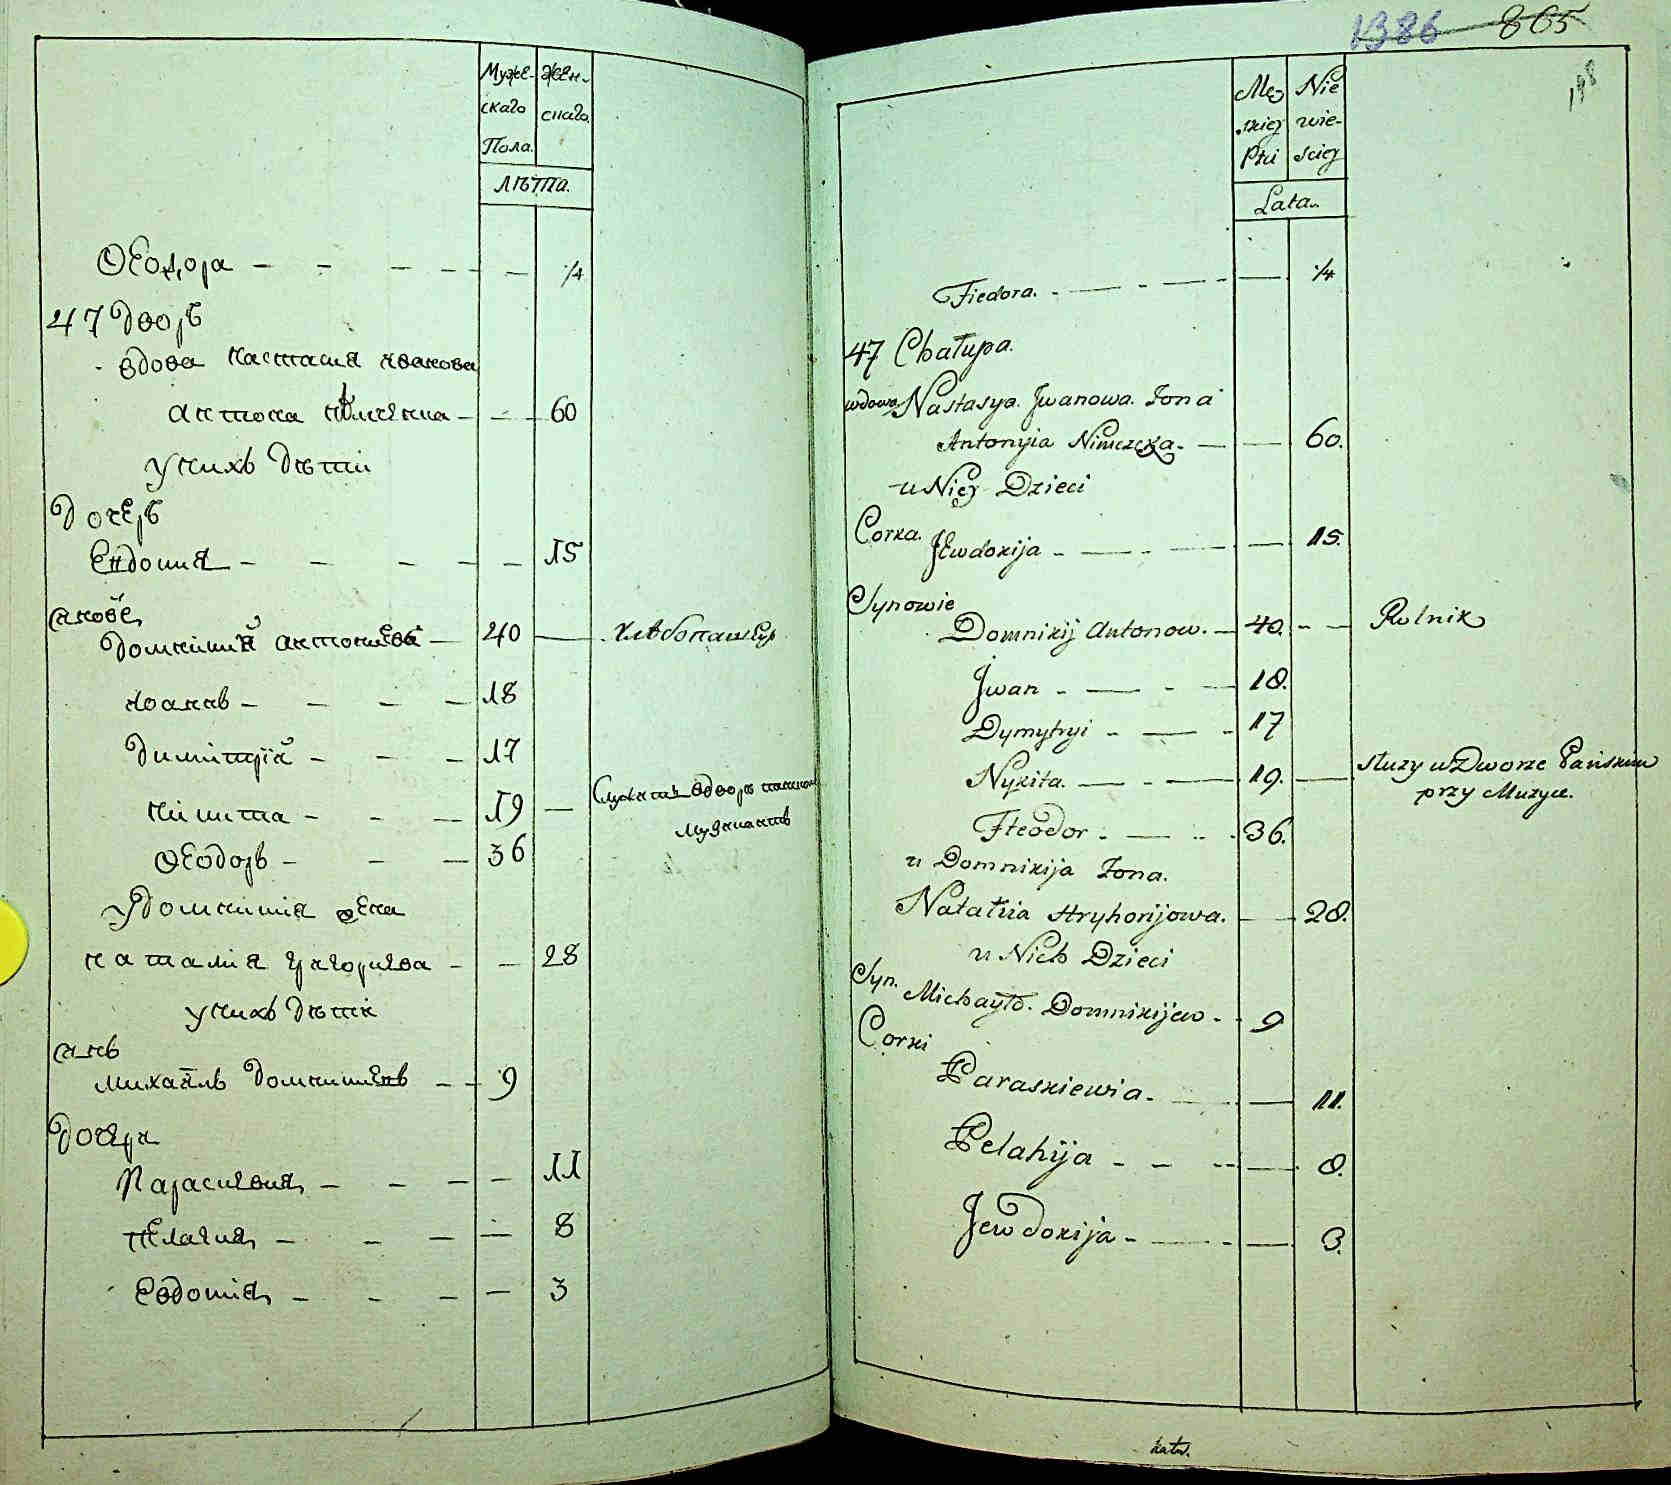 Муже-
скаго
Пола.
Жен-
скаго.
лѣта.
Ѳеодора — — — — — 14
47 Дворъ
вдова Настасия Иванова
Антона Нѣмченка — — — 60
У нихъ дѣти
Дочерь
Евдокия — — — — — 15
Сынове
Домникий Антониевъ — 40 — Хлѣбопашецъ
Иоаннъ — — — — 18
Димитрій — — — 17
Никита — — — 19 —
Музыкантъ
Ѳеодоръ — — — 36
У Домникия жена
Наталия Григориева — — 28
У нихъ дѣти
Сынъ
Михаилъ Домникиевъ — — 9
Дочери
Параскевия — — — — 11
Пелагия — — — — 8
Евдокия — — — — 3
1386 865
198
Męz
skiej
Płci
Nie
wie-
sciej
Lata.
Fiedora. — — — 14
47 Chałupa.
wdowa Nastasya Jwanowa. Żona
Antonyia Nimczęka. — — 60.
u Niej Dzieci
Corka.
Jewdokija — — — 15.
Synowie
Domnikij Antonow. — 40. — — Rolnik
Jwan — — — 18.
Dymytryi — — 17
Nykita. — — — 19. — służy w Dworze Pańskim
przy Muzyce.
Fteodor — — 36.
u Domnikija Żona.
Natalia Hryhorijowa. — — 28.
u Nich Dzieci
Syn.
Michayło. Domnikijew — 9
Corki
Paraskiewia. — — 11.
Pelahija — — — 8.
Jewdokija — — — 3.